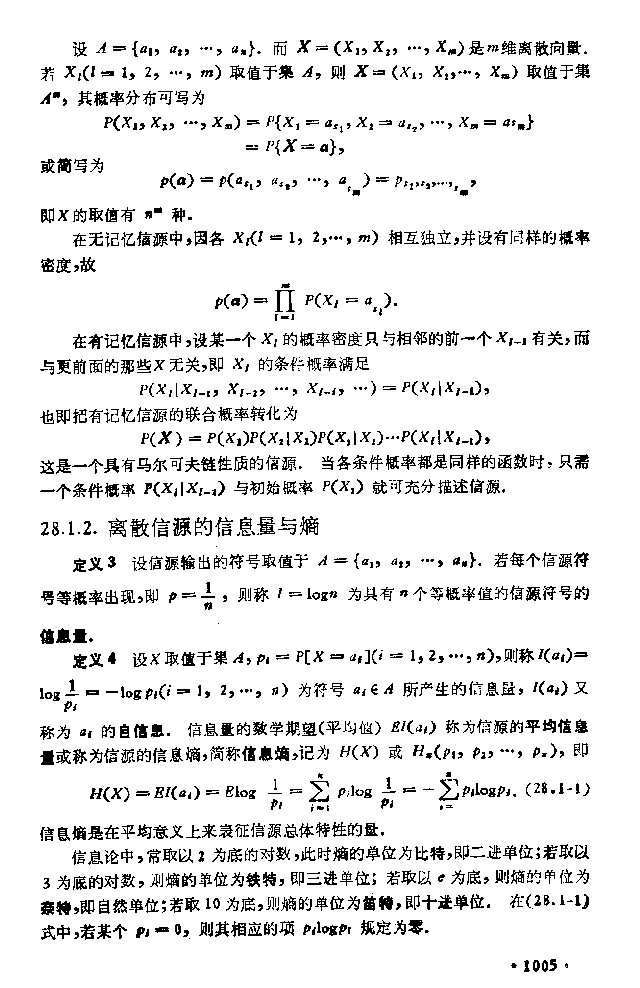 设 A = {a₁, a₂, ⋯, aₙ}. 而 X = (X₁, X₂, ⋯, Xₘ) 是 m 维离散向量.
若 Xₗ(l = 1, 2, ⋯, m) 取值于集 A, 则 X = (X₁, X₂, ⋯, Xₘ) 取值于集
Aᵐ, 其概率分布可写为
P(X₁, X₂, ⋯, Xₘ) = P{X₁ = a_{s₁}, X₂ = a_{s₂}, ⋯, Xₘ = a_{sₘ}}
= P{X = a},
或简写为
p(a) = p(a_{s₁}, a_{s₂}, ⋯, a_{sₘ}) = p_{s₁,s₂,⋯,sₘ},
即 X 的取值有 nᵐ 种.
在无记忆信源中,因各 Xₗ(l = 1, 2, ⋯, m) 相互独立,并设有同样的概率
密度,故
p(a) = ∏_{l=1}^{m} P(Xₗ = a_{sₗ}).
在有记忆信源中,设某一个 Xₗ 的概率密度只与相邻的前一个 Xₗ₋₁ 有关,而
与更前面的那些 X 无关,即 Xₗ 的条件概率满足
P(Xₗ|Xₗ₋₁, Xₗ₋₂, ⋯, Xₗ₋ᵢ, ⋯) = P(Xₗ|Xₗ₋₁),
也即把有记忆信源的联合概率转化为
P(X) = P(X₁)P(X₂|X₁)P(X₃|X₂)⋯P(Xₗ|Xₗ₋₁),
这是一个具有马尔可夫链性质的信源. 当各条件概率都是同样的函数时, 只需
一个条件概率 P(Xₗ|Xₗ₋₁) 与初始概率 P(X₁) 就可充分描述信源.
28.1.2. 离散信源的信息量与熵
定义 3 设信源输出的符号取值于 A = {a₁, a₂, ⋯, aₙ}. 若每个信源符
号等概率出现,即 p = 1/n, 则称 I = logn 为具有 n 个等概率值的信源符号的
信息量.
定义 4 设 X 取值于集 A, pᵢ = P[X = aᵢ](i = 1, 2, ⋯, n),则称 I(aᵢ)=
log 1/pᵢ = −log pᵢ(i = 1, 2, ⋯, n) 为符号 aᵢ ∈ A 所产生的信息量, I(aᵢ) 又
称为 aᵢ 的自信息. 信息量的数学期望(平均值) EI(aᵢ) 称为信源的平均信息
量或称为信源的信息熵,简称信息熵,记为 H(X) 或 Hₙ(p₁, p₂, ⋯, pₙ), 即
H(X) = EI(aᵢ) = Elog 1/pᵢ = ∑_{i=1}^{n} pᵢlog 1/pᵢ = −∑_{i=}^{n} pᵢlogpᵢ. (28.1-1)
信息熵是在平均意义上来表征信源总体特性的量.
信息论中,常取以 2 为底的对数,此时熵的单位为比特,即二进单位;若取以
3 为底的对数, 则熵的单位为铁特, 即三进单位; 若取以 e 为底, 则熵的单位为
奈特,即自然单位;若取 10 为底,则熵的单位为笛特,即十进单位. 在(28.1-1)
式中,若某个 pᵢ = 0, 则其相应的项 pᵢlogpᵢ 规定为零.
· 1005 ·